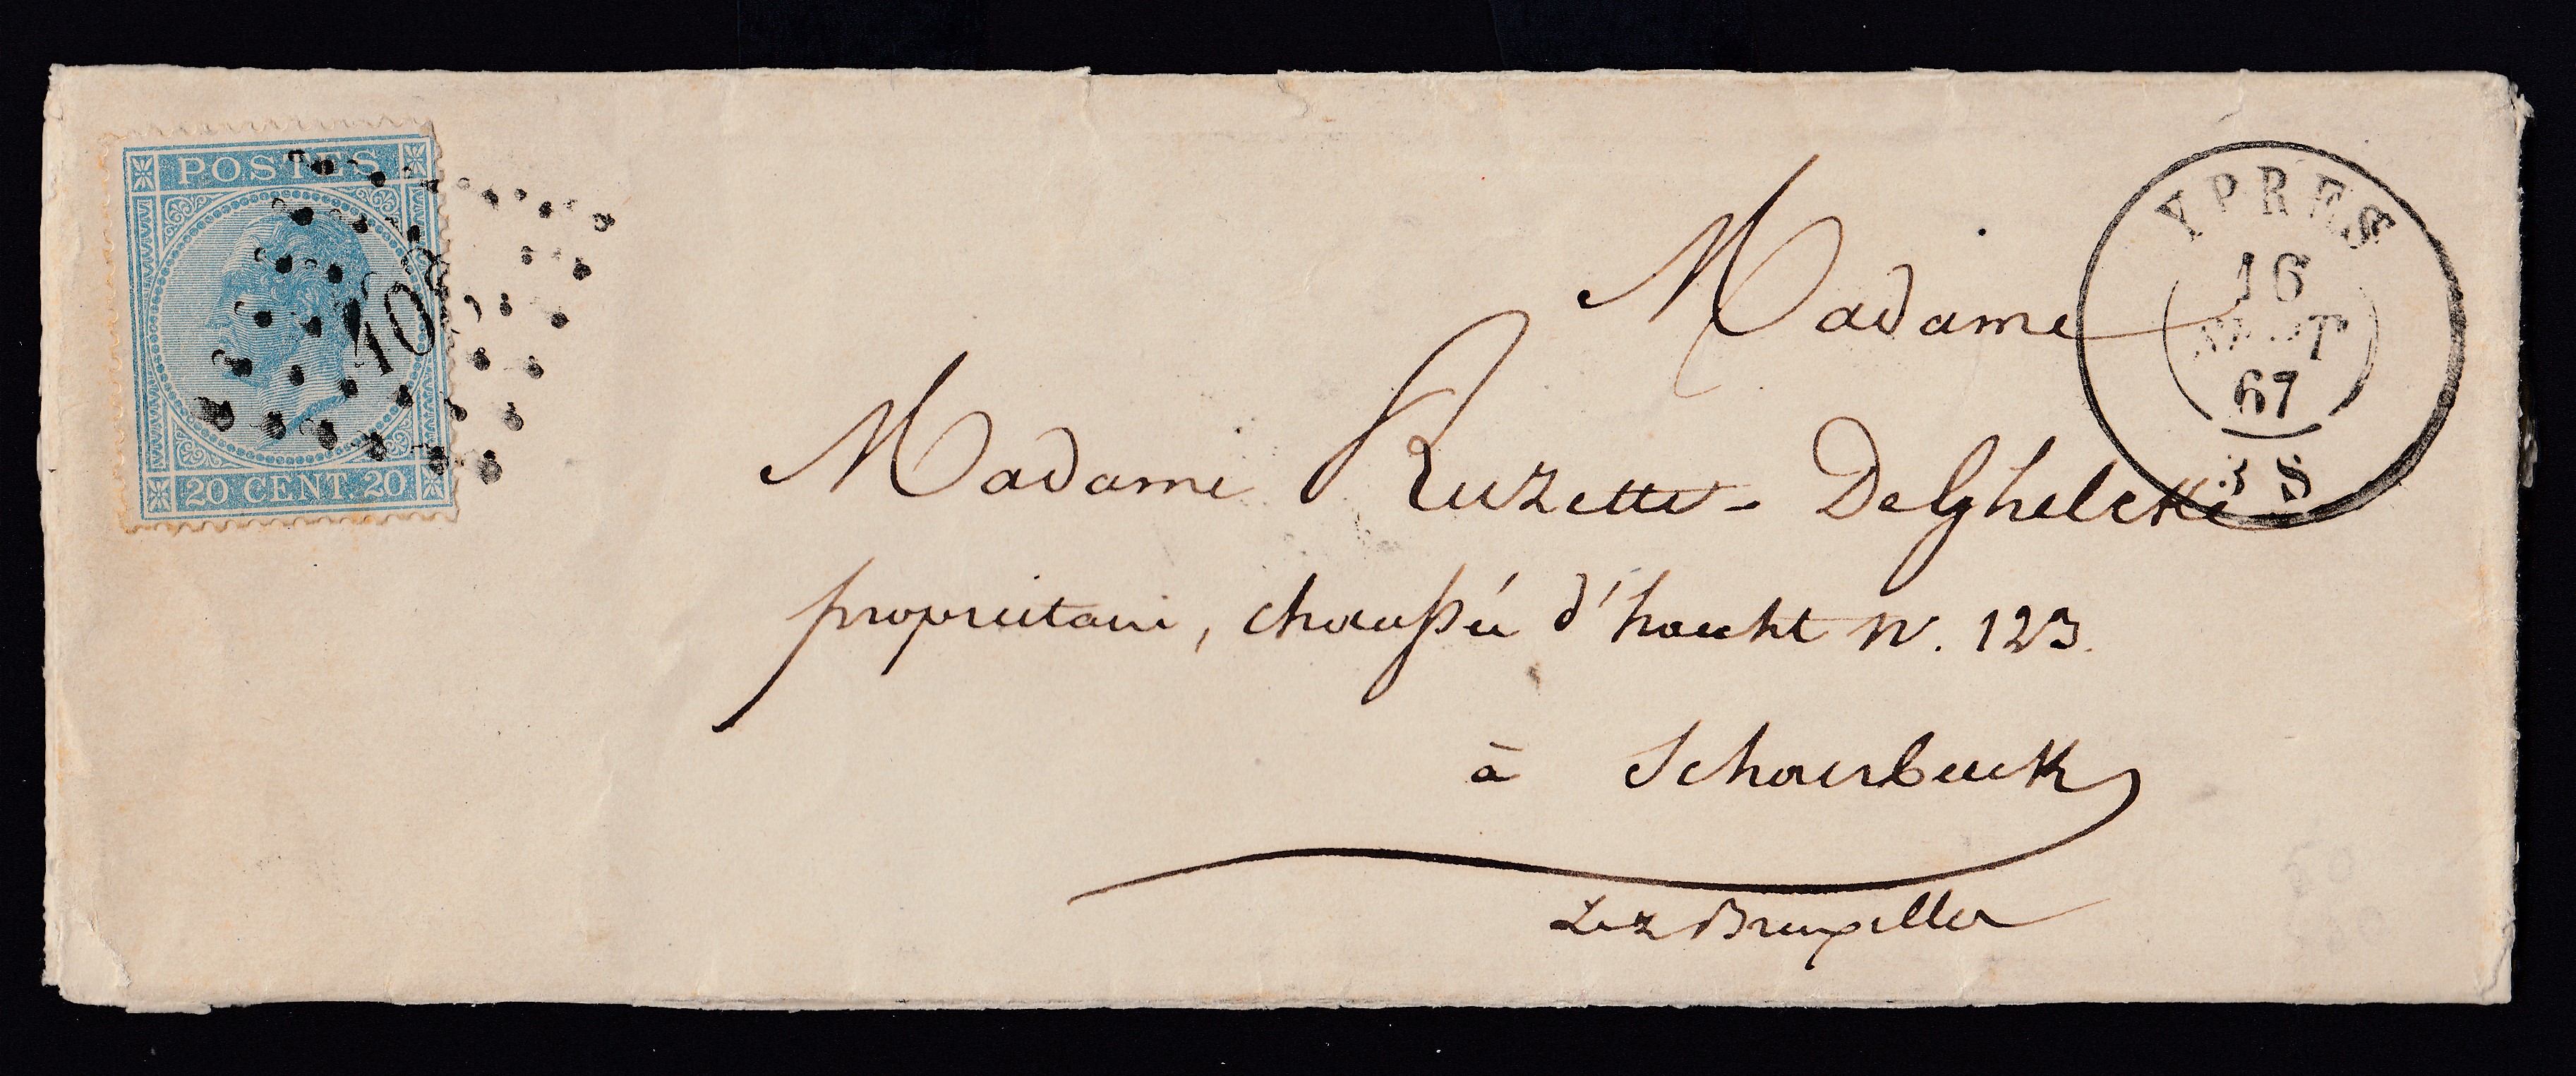 POSTES
408
20 CENT. 20
YPRES
16
SEPT
67
3 S
Madame
Madame Ruzette - Delghelcke
propriétaire, chaussée d'haecht N. 123.
à Schaerbeeck
Lez Bruxelles